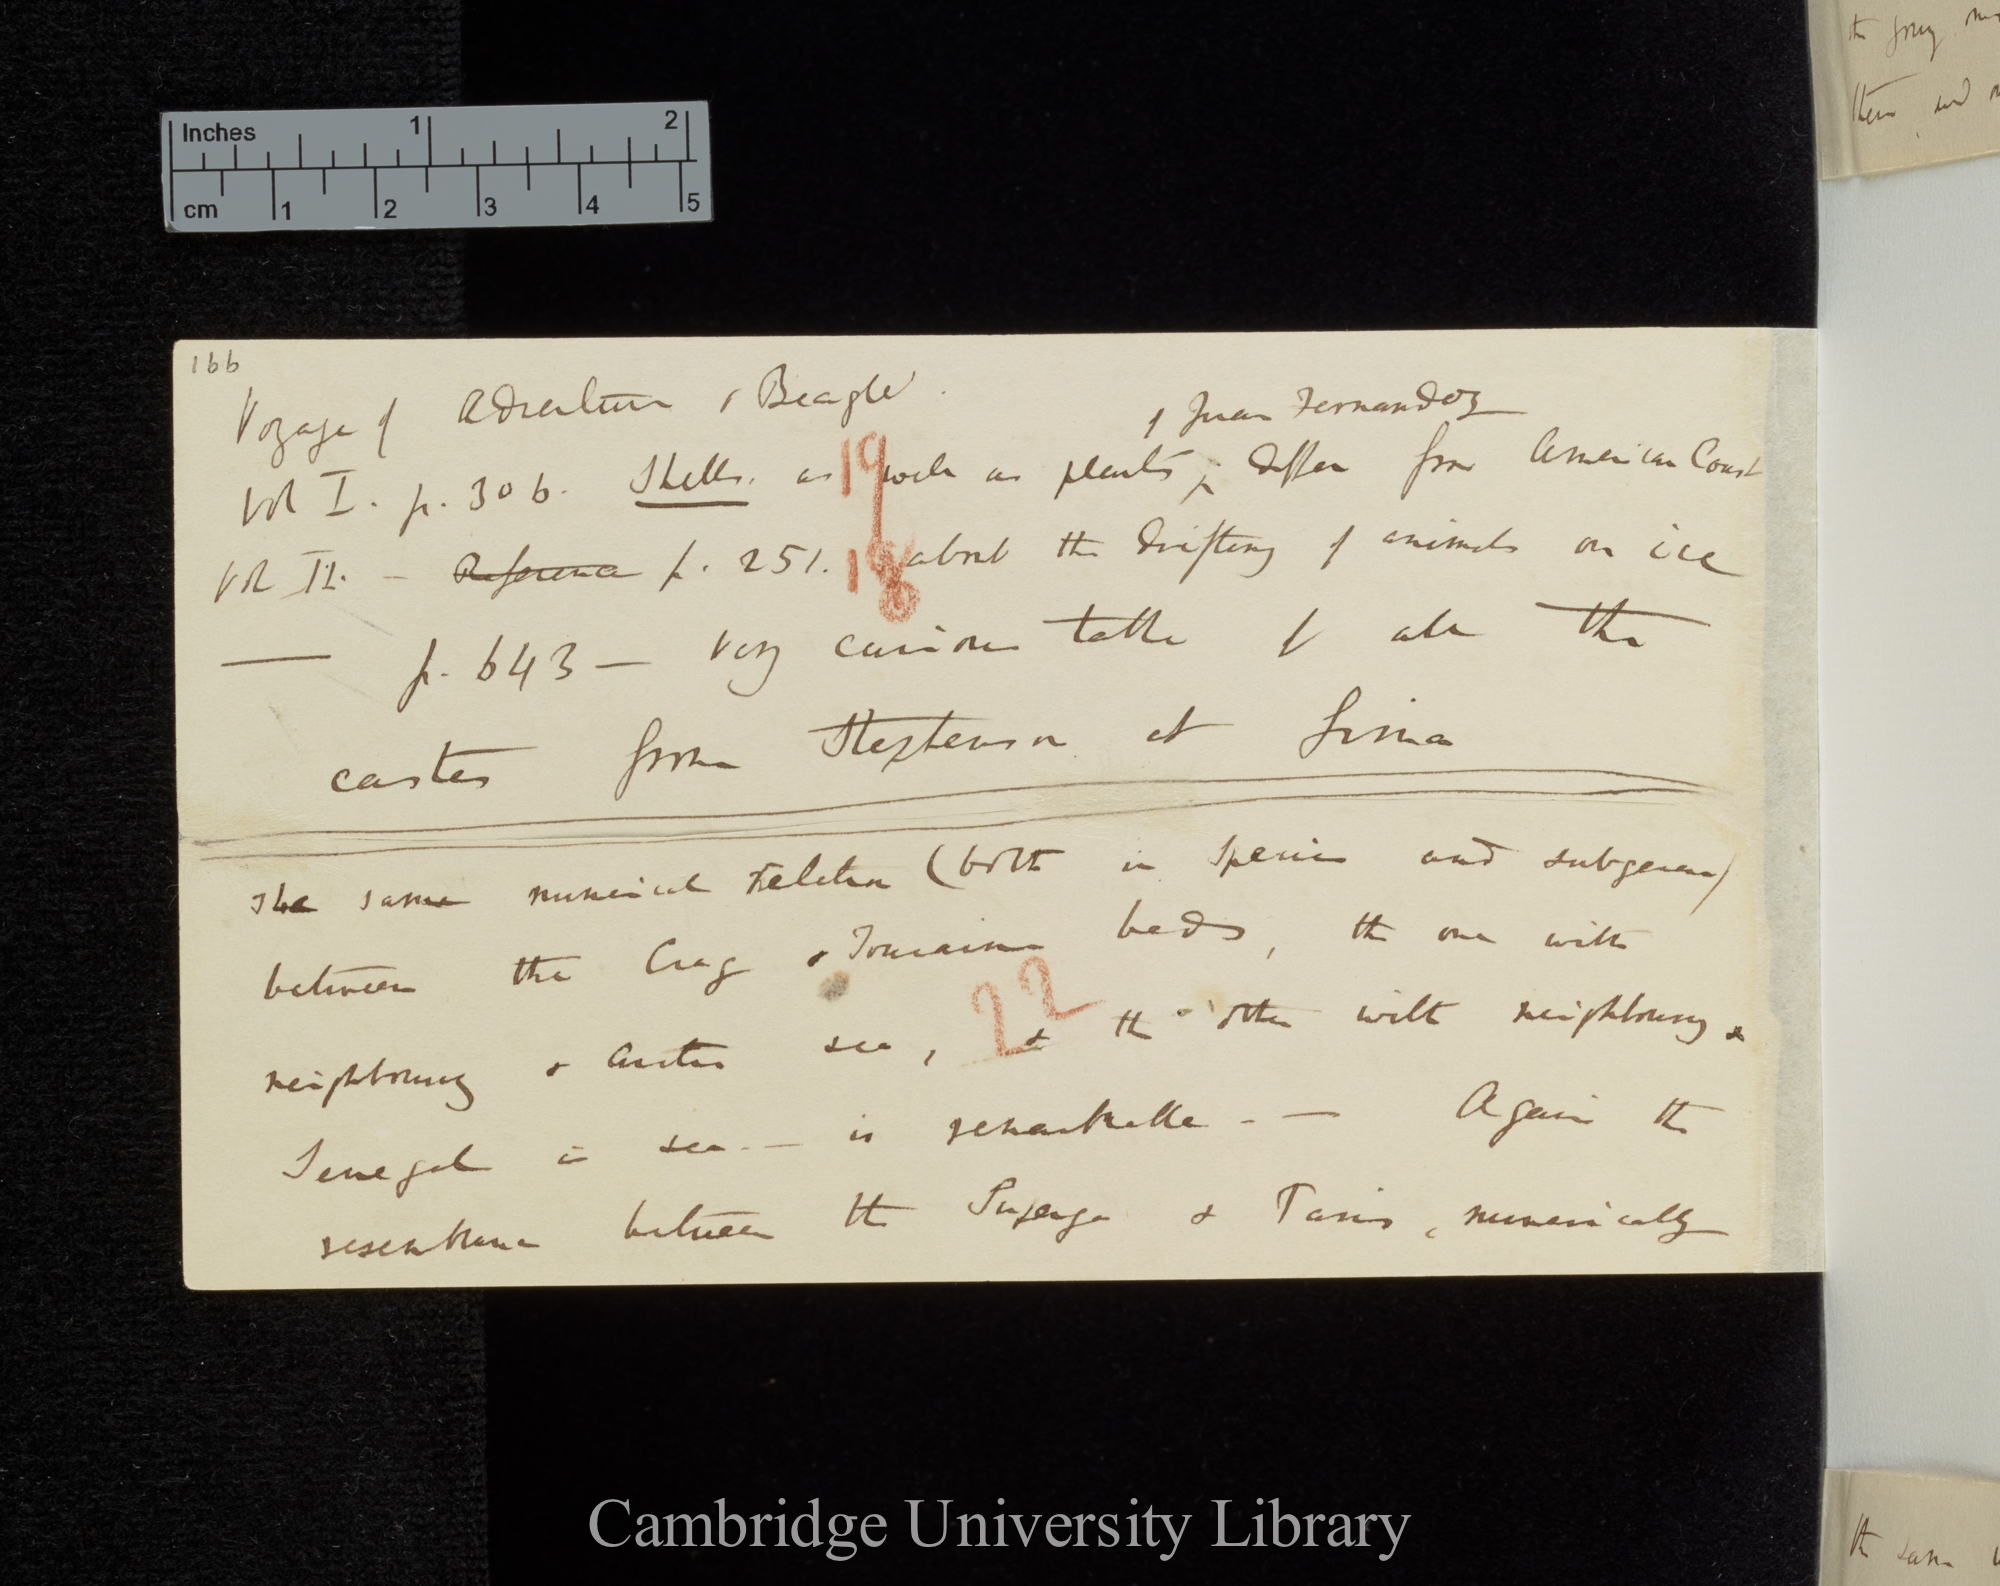 Inches 1 2
cm 1 2 3 4 5
166
Voyage of Adventure & Beagle.
of Juan Fernandez
Vol I. p. 306. Shells. as well as plants, differ from American Coast
19
Vol II. – Reference p. 251. about the drifting of animals on ice
18
— p. 643 — Very curious table of all the
castes from Stephenson at Lima
The same numerical relation (both in species and subgenera)
between the Crag & Touraine beds, the one with
22
neighbouring & Arctic sea, & the other with neighbouring &
Senegal in sea. — is remarkable. — Again the
resemblance between the & Paris, numerically
the
them, and
the same
Cambridge University Library